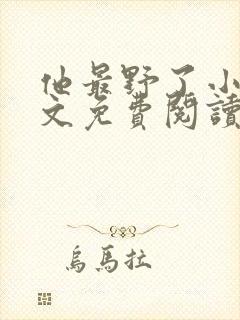 他最野了小
文免費閱讀
烏馬拉